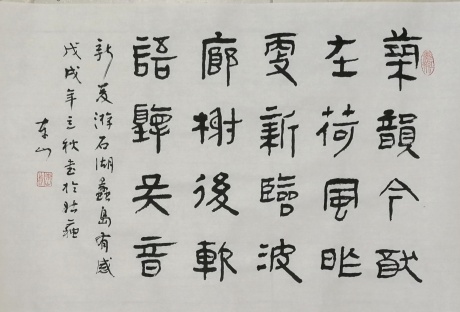 韻今猷
在荷風昨
新臨波
廊榭後軒
語聽吴音
新夏游石湖蠡島有感
戊戌年立秋書於姑蘇
東山